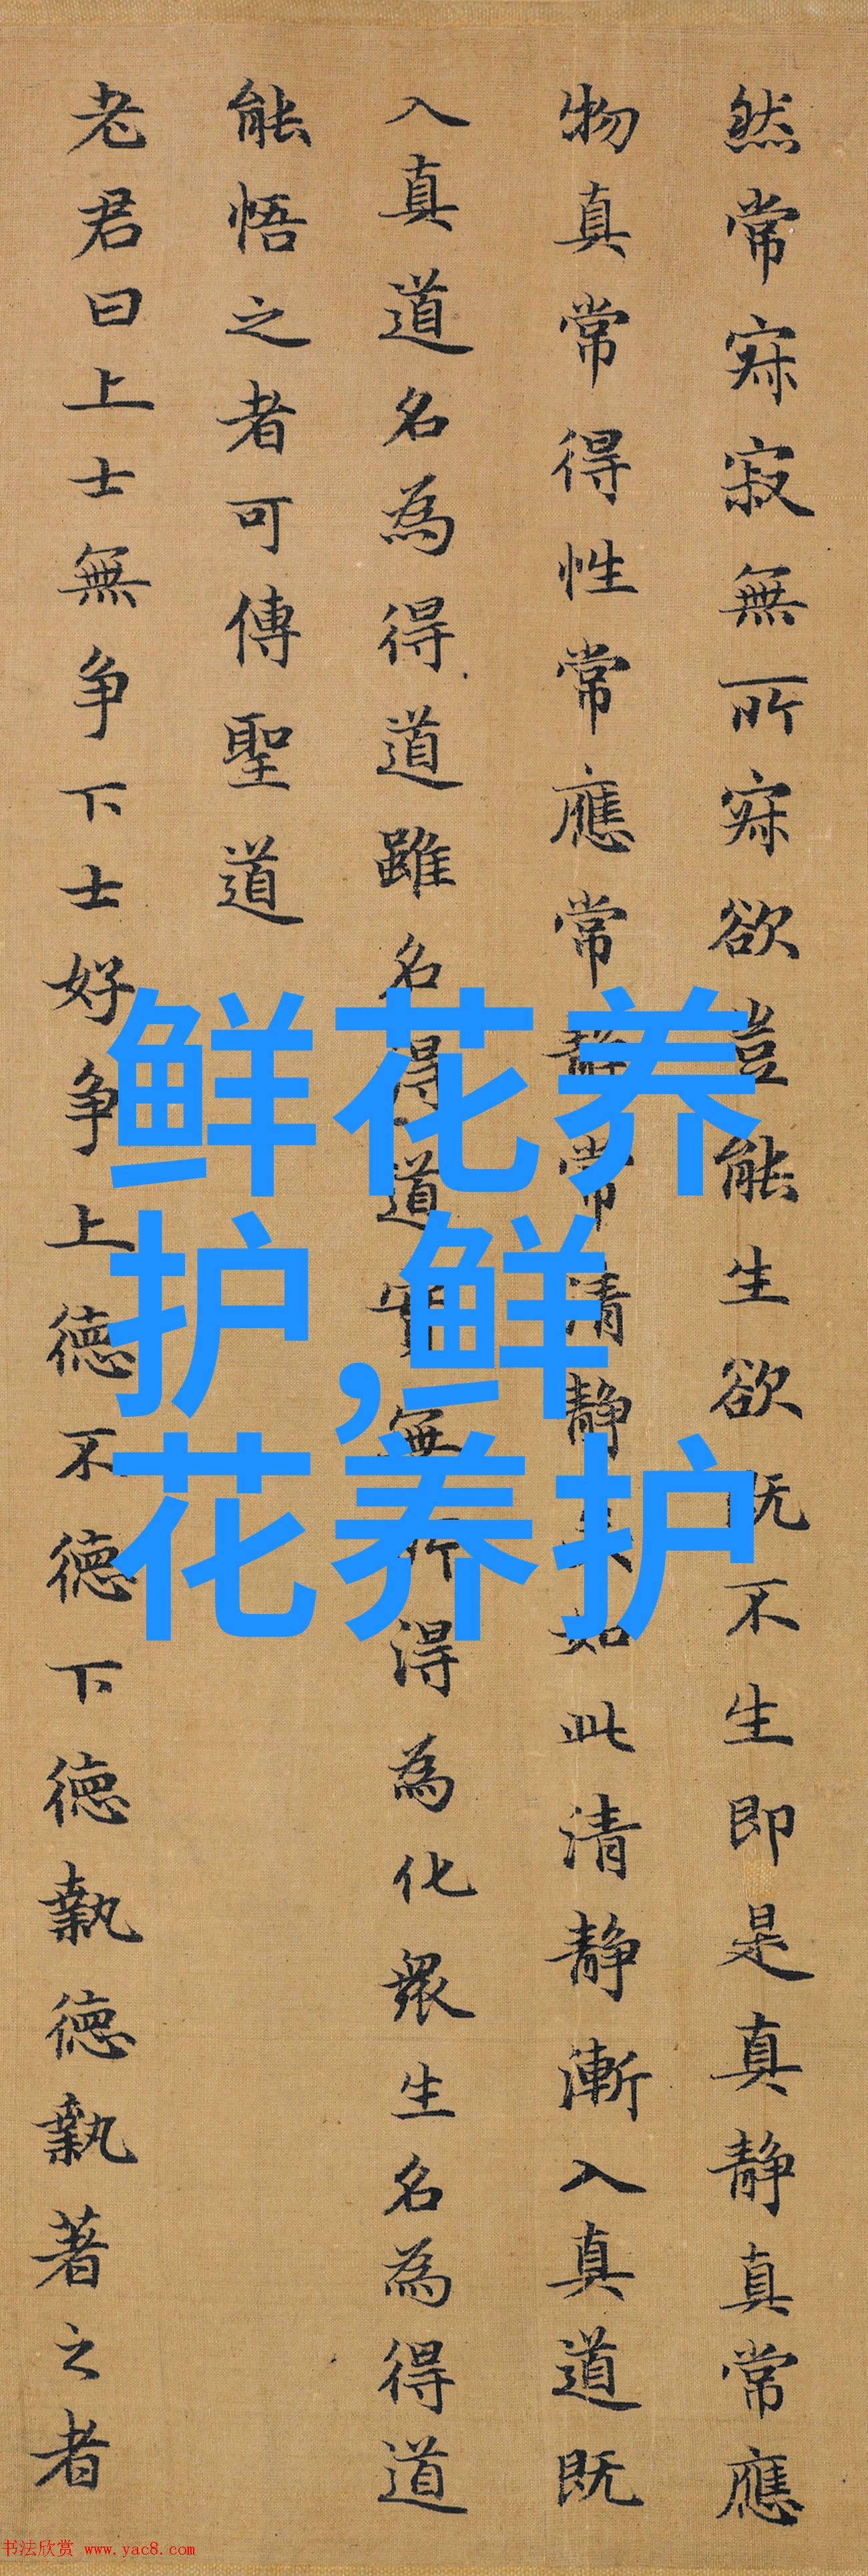 然常寂寂無所寂欲豈能生欲既不生即是真静真常應
物真常得性常應常静常清静矣如此清静漸入真道既
入真道名為得道雖名得道實無所得為化衆生名為得道
能悟之者可傳聖道
老君曰上士無争下士好争上德不德下德執德執著之者
鲜花养
护,鲜
花养护
书法欣赏 www.yac8.com